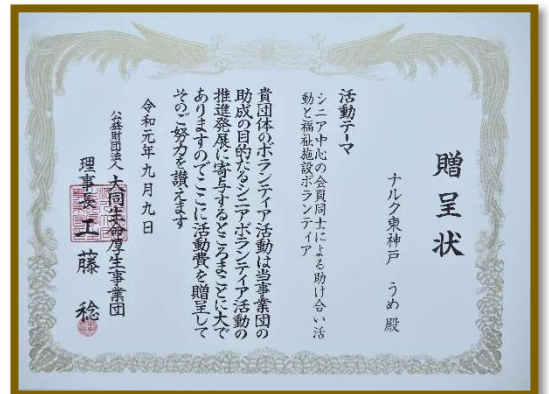 贈呈状
ナルク東神戸 うめ 殿
活動テーマ
シニア中心の会員同士による助け合い活
動と福祉施設ボランティア
貴団体のボランティア活動は当事業団の
助成の目的たるシニアボランティア活動の
推進発展に寄与するところまことに大で
ありますのでここに活動費を贈呈して
そのご努力を讃えます
令和元年九月九日
公益財団法人 大同生命厚生事業団
理事長 工藤 稔